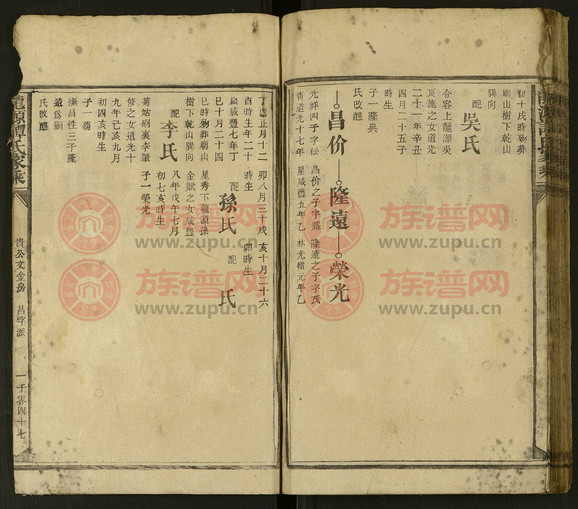 初十戌時歿葬
廟山樹下乾山
巽向
配
吳氏
合容上龍源吳
二十一年辛丑
四月二十五子
時生
子一隆興
氏改醮
昌价
隆遠
榮光
昌价之子字
隆遠之子字茂
光祥四子字松
青道光十七年
星咸豐五年乙
林光緒元年乙
丁酉正月十二
酉時生年二十
歲咸豐七年丁
巳十月二十四
巳時歿葬廟山
樹下乾山巽向
配
李氏
菊姑剧裏李肇
修之女道光十
九年己亥九月
初四亥時生
子一殤
撫昌性三子隆
遠為嗣
氏改醮
卯八月三十戌
時生
配
孫氏
星秀下龍源孫
金賦之女咸豐
八年戊午七月
初七亥時生
子一榮光
亥十月二十六
卯時生
配
氏
龍源譚氏家乘
貴公文金房
昌字派
一千零四十七
族谱网
www.zupu.cn
族谱网
www.zupu.cn
族谱网
www.zupu.cn
族谱网
www.zupu.cn